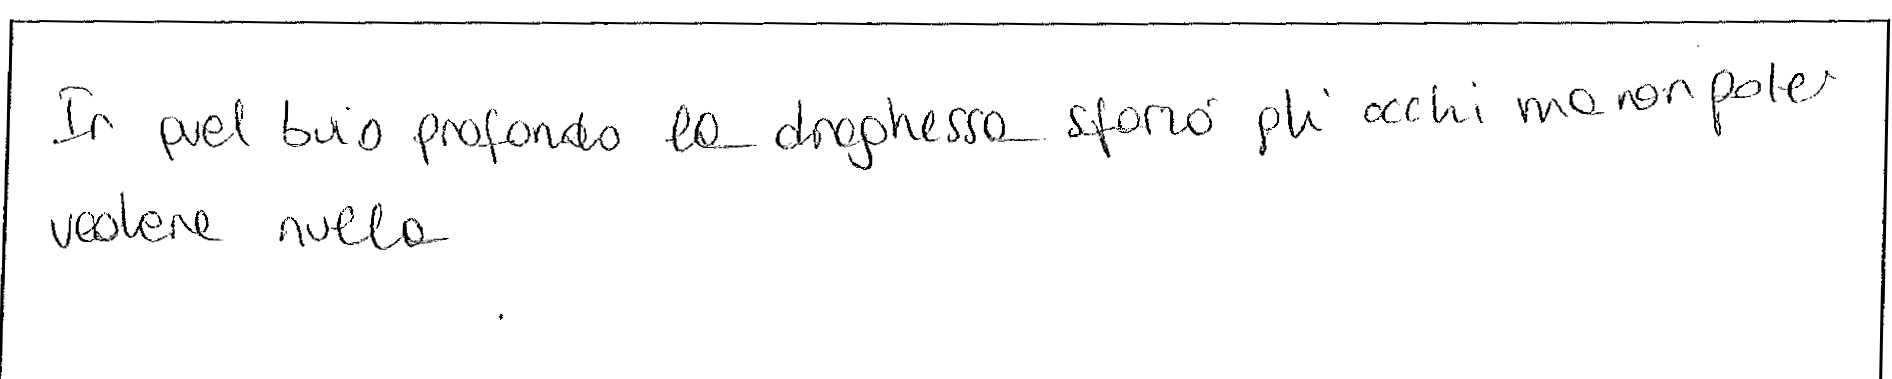 In quel buio profondo la draghessa sforzò gli occhi ma non potev
vedere nulla